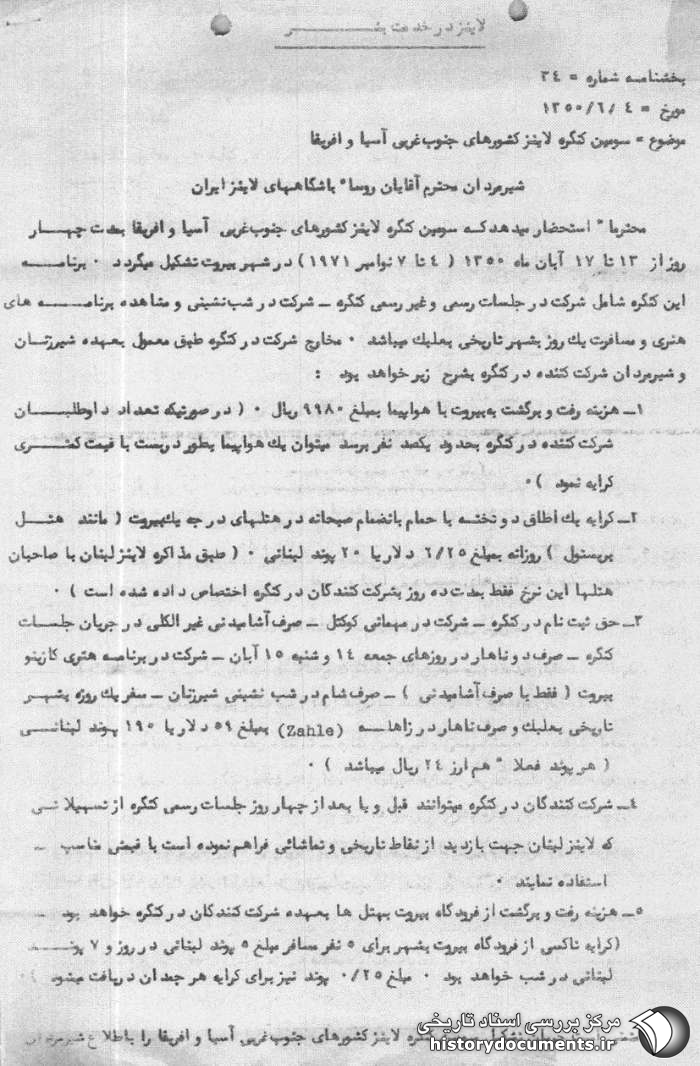 لاینز در خدمت بشر
بخشنامه شماره = ۳۴
مورخ = ۱۳۵۰/۶/۴
موضوع = سومین کنگره لاینز کشورهای جنوب غربی آسیا و افریقا
شیرمردان محترم آقایان روساء باشگاههای لاینز ایران
محترما " استحضار میدهد که سومین کنگره لاینز کشورهای جنوب غربی آسیا و افریقا بمدت چهار
روز از ۱۳ تا ۱۷ آبان ماه ۱۳۵۰ ( ۴ تا ۷ نوامبر ۱۹۷۱ ) در شهر بیروت تشکیل میگردد ۰ برنامه
این کنگره شامل شرکت در جلسات رسمی و غیر رسمی کنگره ــ شرکت در شب نشینی و مشاهده برنامه های
هنری و مسافرت یك روز بشهر تاریخی بعلبك میباشد ۰ مخارج شرکت در کنگره طبق معمول بعهده شیرزنان
و شیرمردان شرکت کننده در کنگره بشرح زیر خواهد بود :
۱ــ هزینه رفت و برگشت به بیروت با هواپیما بمبلغ ۹۹۸۰ ریال ۰ ( در صورتیکه تعداد داوطلبان
شرکت کننده در کنگره بحدود یکصد نفر برسد میتوان یك هواپیما بطور دربست با قیمت کمتری
کرایه نمود ) ۰
۲ــ کرایه یك اطاق دو تخته با حمام بانضمام صبحانه در هتلهای درجه یك بیروت ( مانند هتل
بریستول ) روزانه بمبلغ ۶/۲۵ دلار یا ۲۰ پوند لبنانی ۰ ( طبق مذاکره لاینز لبنان با صاحبان
هتلها این نرخ فقط بمدت ده روز بشرکت کنندگان در کنگره اختصاص داده شده است ) ۰
۳ــ حق ثبت نام در کنگره ــ شرکت در مهمانی کوکتل ــ صرف آشامیدنی غیر الکلی در جریان جلسات
کنگره ــ صرف دو ناهار در روزهای جمعه ۱۴ و شنبه ۱۵ آبان ــ شرکت در برنامه هنری کازینو
بیروت ( فقط با صرف آشامیدنی ) ــ صرف شام در شب نشینی شیرزنان ــ سفر یك روزه بشهر
تاریخی بعلبك و صرف ناهار در زاهله (Zahle) بمبلغ ۵۹ دلار یا ۱۹۰ پوند لبنانی
( هر پوند فعلا " هم ارز ۲۴ ریال میباشد ) ۰
۴ــ شرکت کنندگان در کنگره میتوانند قبل و یا بعد از چهار روز جلسات رسمی کنگره از تسهیلاتی
که لاینز لبنان جهت بازدید از نقاط تاریخی و تماشائی فراهم نموده است با قیمتی مناسب ــ
استفاده نمایند ۰
۵ــ هزینه رفت و برگشت از فرودگاه بیروت بهتل ها بعهده شرکت کنندگان در کنگره خواهد بود ــ
(کرایه تاکسی از فرودگاه بیروت بشهر برای ۵ نفر مسافر مبلغ ۵ پوند لبنانی در روز و ۷ پوند
لبنانی در شب خواهد بود ۰ مبلغ ۰/۲۵ پوند نیز برای کرایه هر چمدان دریافت میشود ) ۰
کنگره لاینز کشورهای جنوب غربی آسیا و افریقا را باطلاع شیرمردان
مرکز بررسی اسناد تاریخی
historydocuments.ir